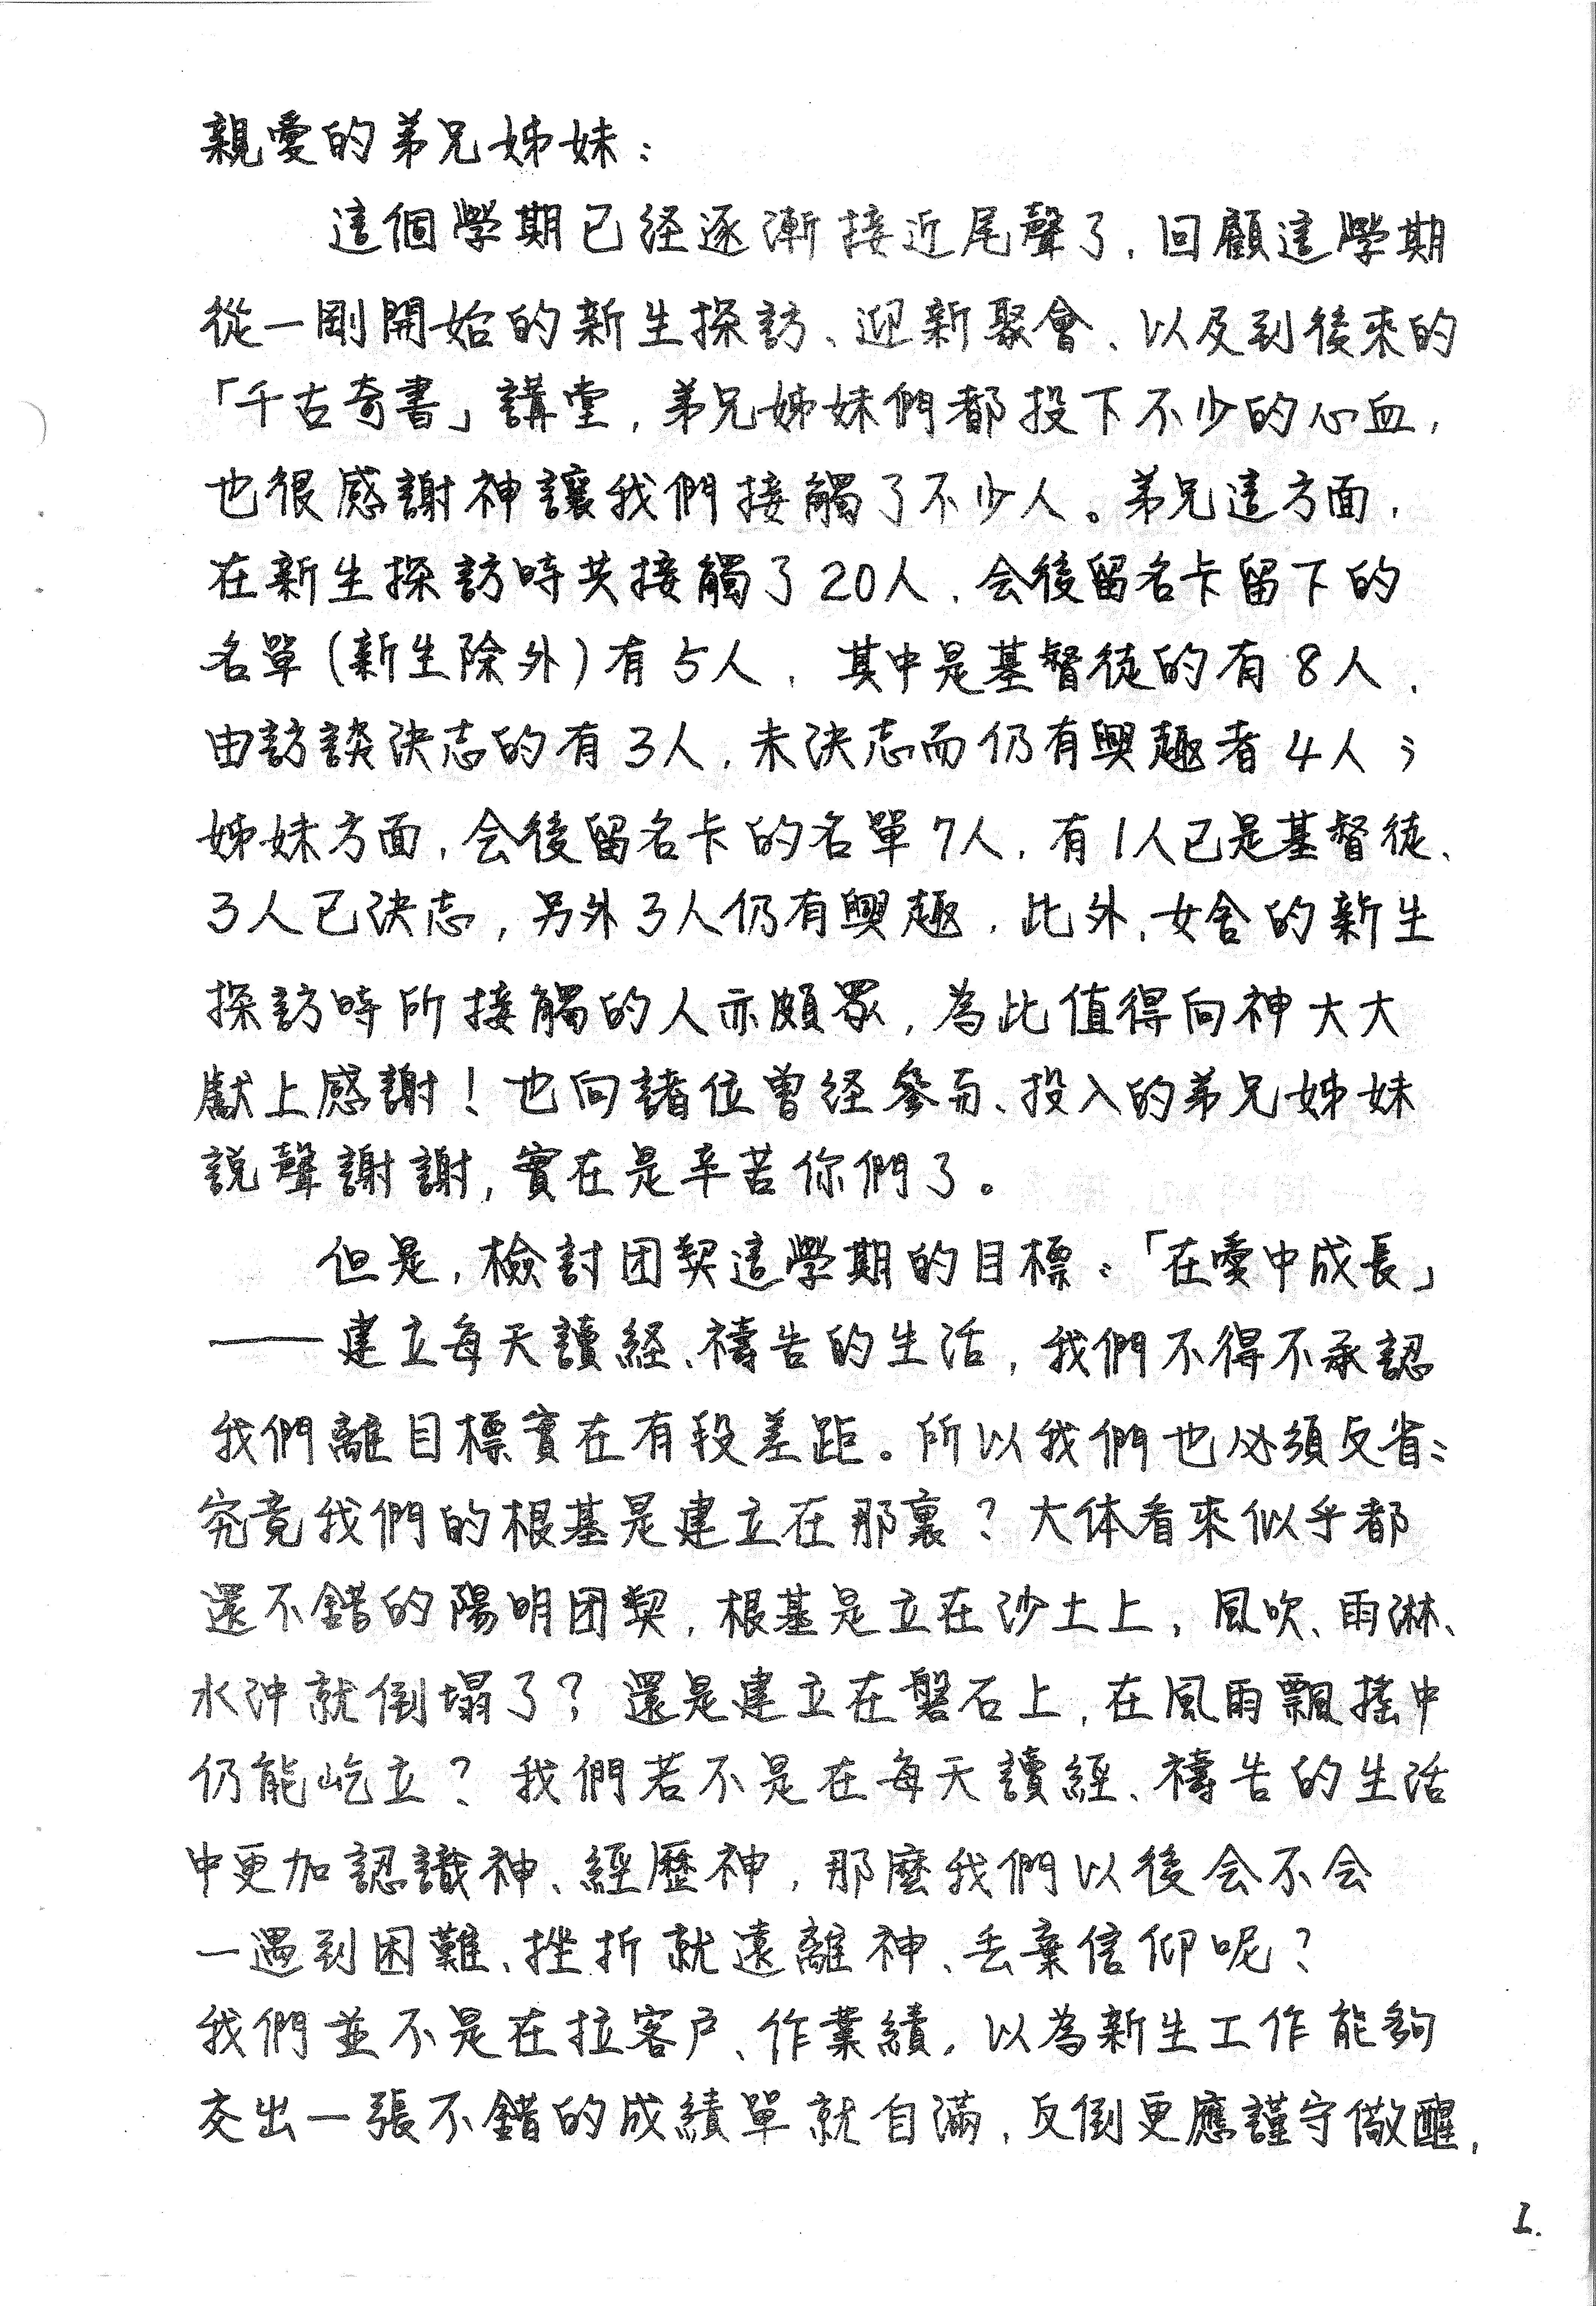 親愛的弟兄姊妹：
這個學期已経逐漸接近尾聲了，回顧這學期
從一剛開始的新生探訪、迎新聚會、以及到後來的
「千古奇書」講堂，弟兄姊妹們都投下不少的心血，
也很感謝神讓我們接觸了不少人。弟兄這方面，
在新生探訪時共接觸了20人，会後留名卡留下的
名單(新生除外)有5人，其中是基督徒的有8人，
由訪談決志的有3人，未決志而仍有興趣者4人；
姊妹方面，会後留名卡的名單7人，有1人已是基督徒、
3人已決志，另外3人仍有興趣，此外，女舍的新生
探訪時所接觸的人亦頗眾，為此值得向神大大
獻上感謝！也向諸位曾経參与、投入的弟兄姊妹
說聲謝謝，實在是辛苦你們了。
但是，檢討团契這學期的目標：「在愛中成長」
——建立每天讀経、禱告的生活，我們不得不承認
我們離目標實在有段差距。所以我們也必須反省：
究竟我們的根基是建立在那裏？大体看來似乎都
還不錯的陽明团契，根基是立在沙土上，風吹、雨淋、
水沖就倒塌了？還是建立在磐石上，在風雨飄搖中
仍能屹立？我們若不是在每天讀經、禱告的生活
中更加認識神、經歷神，那麼我們以後会不会
一遇到困難、挫折就遠離神、丢棄信仰呢？
我們並不是在拉客戶、作業績，以為新生工作能夠
交出一張不錯的成績單就自滿，反倒更應謹守儆醒，
1.